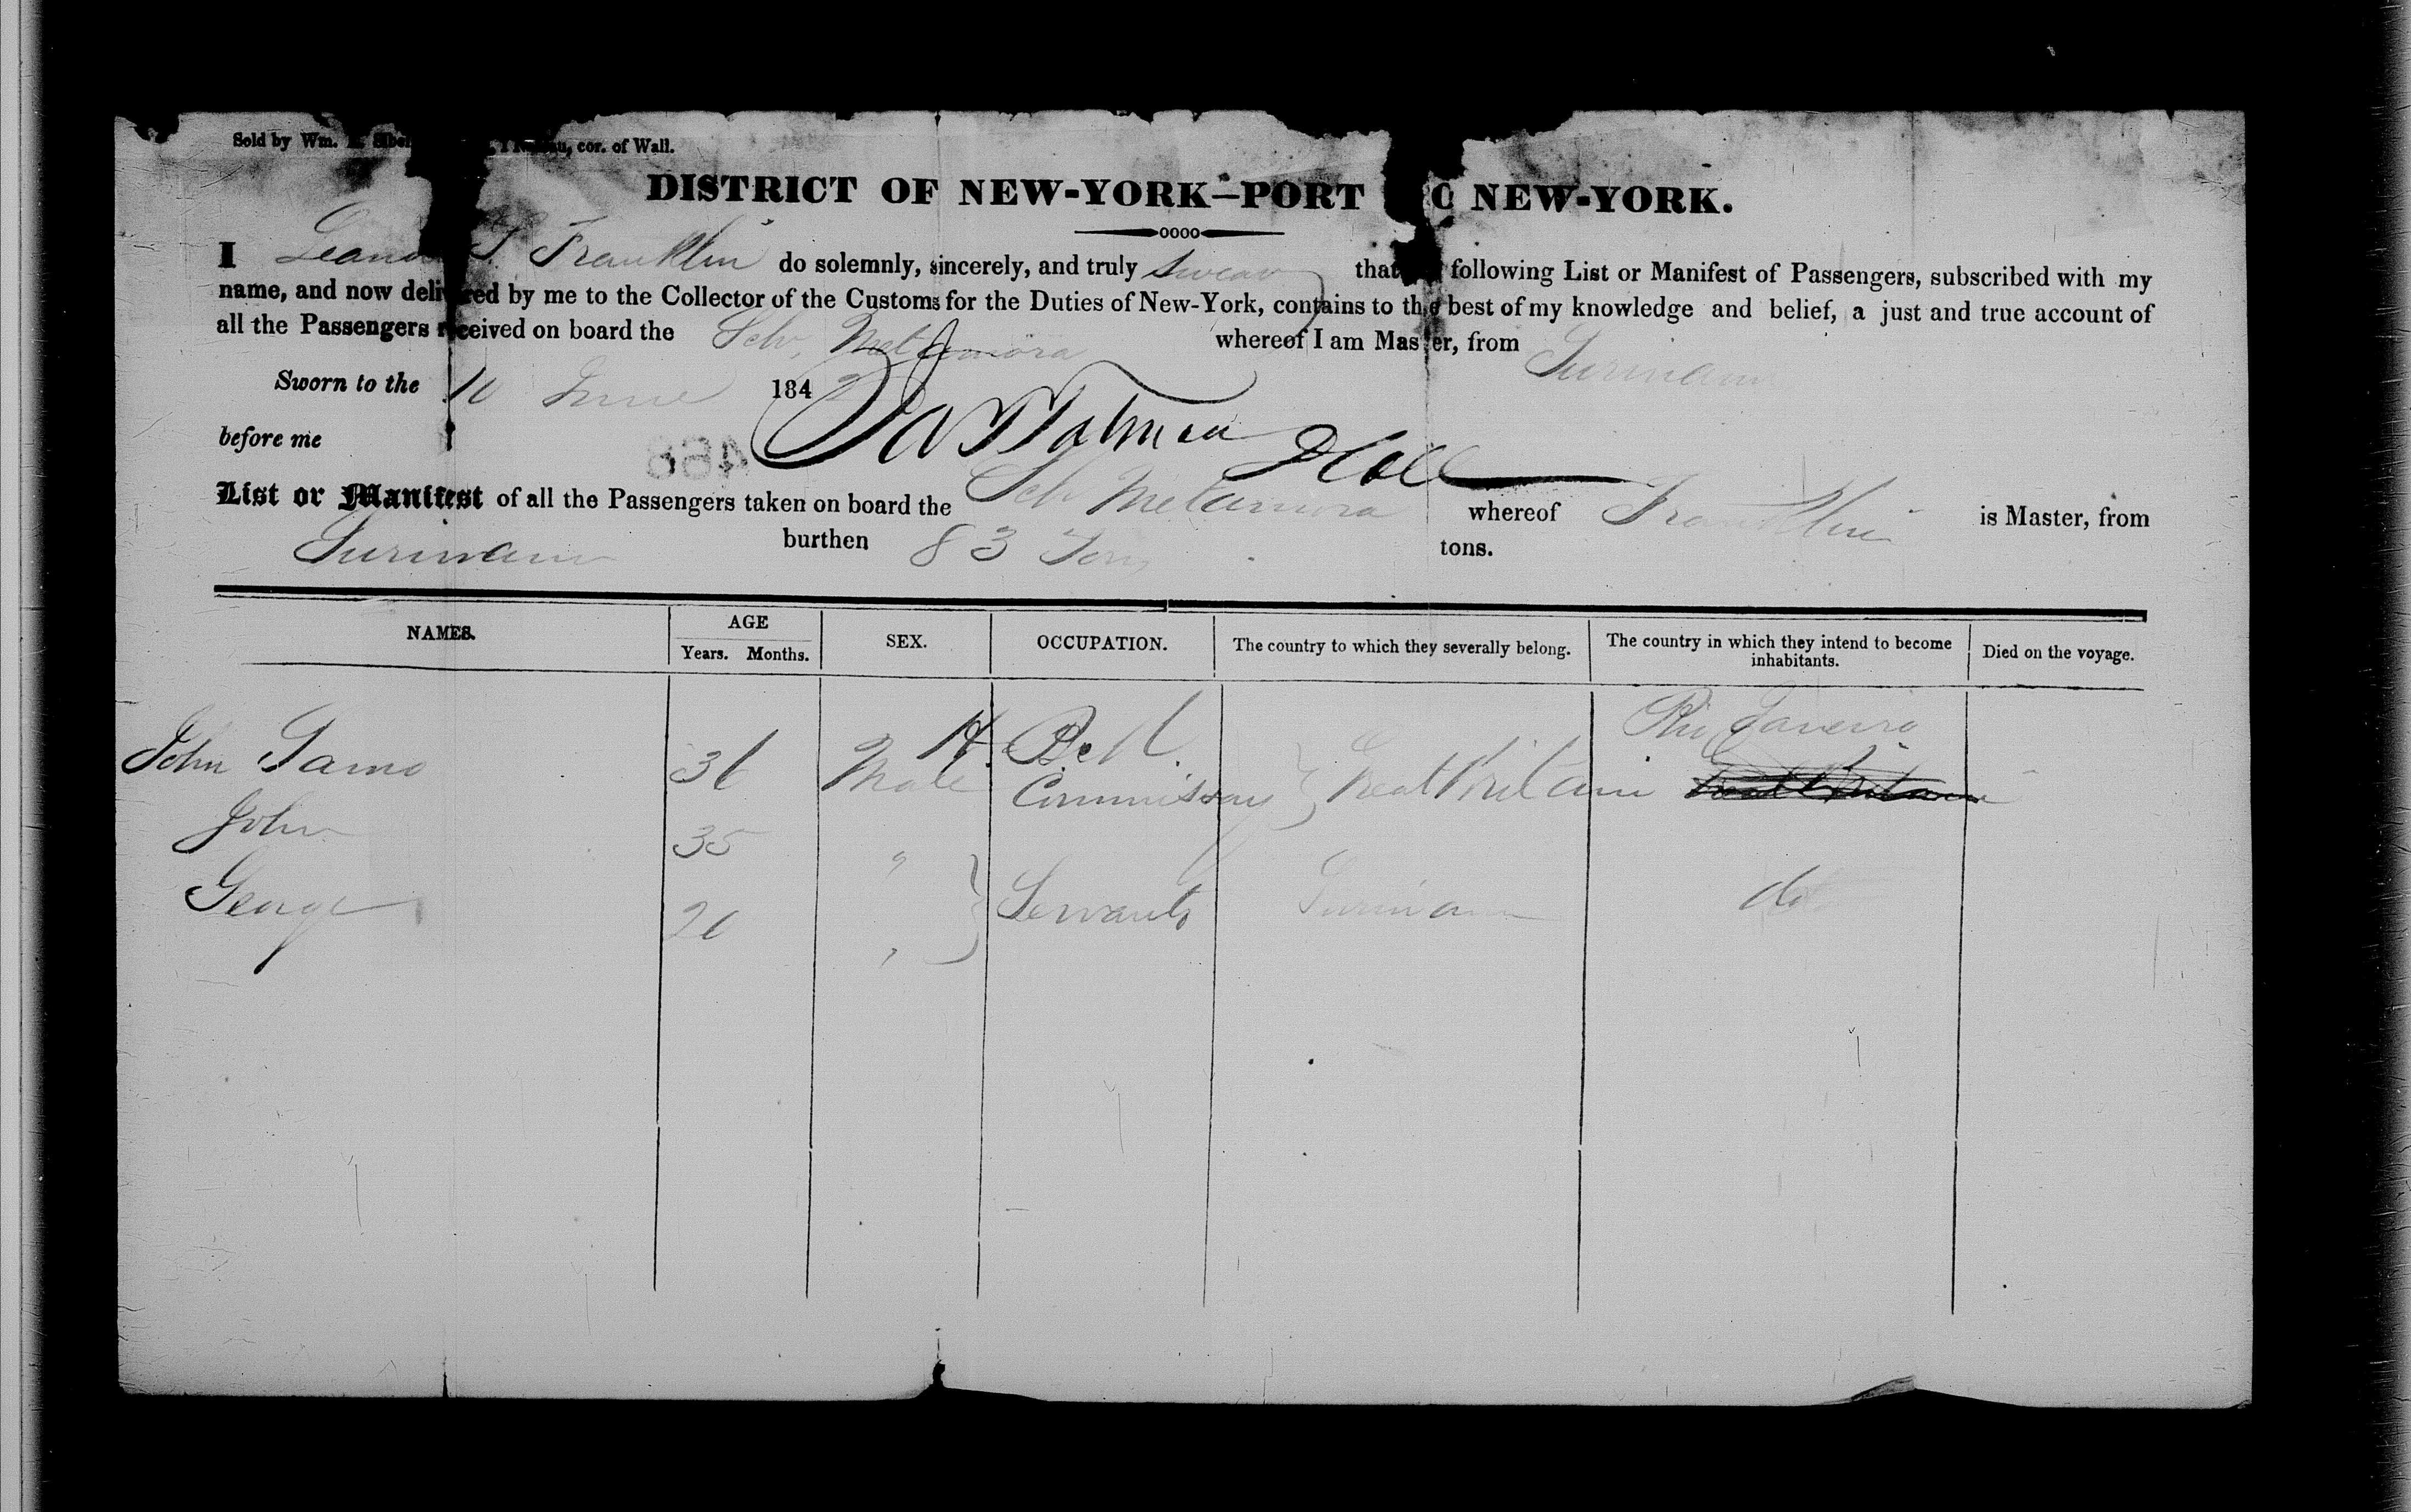 Sold by Wm. cor. of Wall.
DISTRICT OF NEW-YORK—PORT NEW-YORK.
I S. Franklin do solemnly, sincerely, and truly swear that following List or Manifest of Passengers, subscribed with my
name, and now delivered by me to the Collector of the Customs for the Duties of New-York, contains to the best of my knowledge and belief, a just and true account of
all the Passengers received on board the Sch. Metamora whereof I am Master, from Surinam
Sworn to the 10 June 184
before me
List or Manifest of all the Passengers taken on board the Sch Metamora whereof Franklin is Master, from
Surinam burthen 83 Tons tons.
NAMES. AGE Years. Months. SEX. OCCUPATION. The country to which they severally belong. The country in which they intend to become inhabitants. Died on the voyage.
Rio Janeiro
John 36 Male H. B. M. Commissary Great Britain Great Britain
John 35 "
George 20 " Servants Surinam do